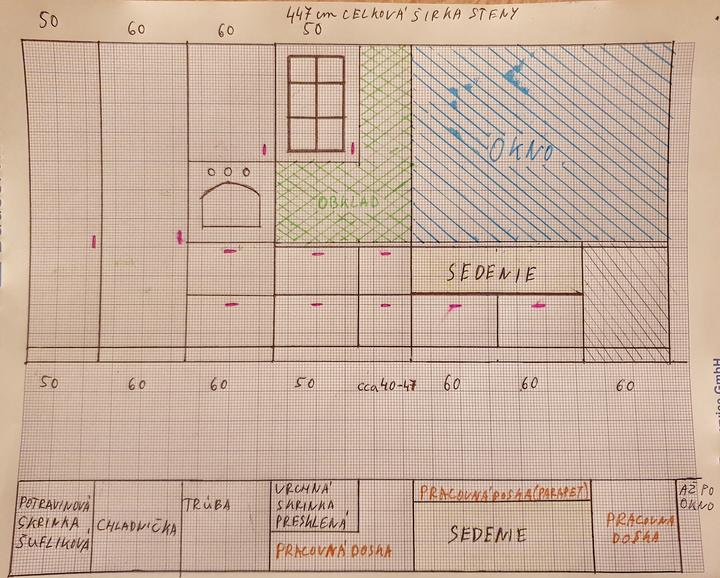 447 cm CELKOVÁ ŠIRKA STENY
50 60 60 50
OKNO
OBKLAD
SEDENIE
50 60 60 50 cca 40-47 60 60 60
POTRAVINOVÁ
SKRINKA
ŠUFLIKOVÁ
CHLADNIČKA
TRÚBA
VRCHNÁ
SKRINKA
PRESKLENÁ
PRACOVNÁ DOSKA
PRACOVNÁ DOSKA (PARAPET)
SEDENIE
PRACOVNÁ
DOSKA
AŽ PO
OKNO
GmbH